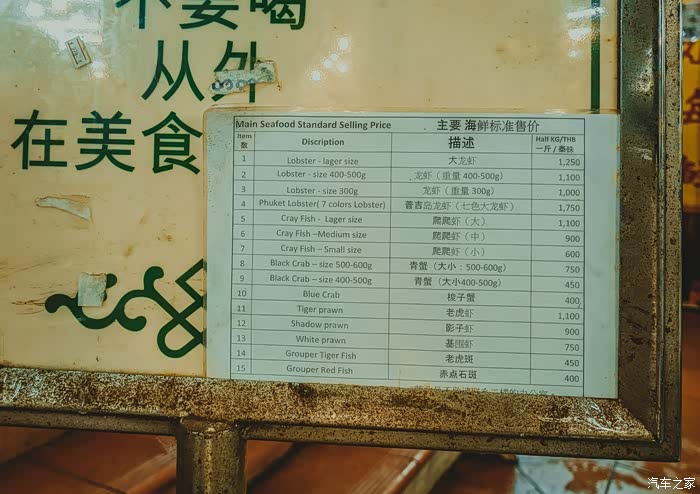 不要喝
从外
在美食
Main Seafood Standard Selling Price 主要 海鲜标准售价
Item 数 Discription 描述 Half KG/THB 一斤 / 泰铢
1 Lobster - lager size 大龙虾 1,250
2 Lobster - size 400-500g 龙虾（重量 400-500g） 1,100
3 Lobster - size 300g 龙虾（重量 300g） 1,000
4 Phuket Lobster( 7 colors Lobster) 普吉岛龙虾（七色大龙虾） 1,750
5 Cray Fish - Lager size 爬爬虾（大） 1,100
6 Cray Fish –Medium size 爬爬虾（中） 900
7 Cray Fish –Small size 爬爬虾（小） 600
8 Black Crab – size 500-600g 青蟹（大小：500-600g） 750
9 Black Crab – size 400-500g 青蟹（大小400-500g） 450
10 Blue Crab 梭子蟹 400
11 Tiger prawn 老虎虾 1,100
12 Shadow prawn 影子虾 900
13 White prawn 基围虾 750
14 Grouper Tiger Fish 老虎斑 450
15 Grouper Red Fish 赤点石斑 400
汽车之家